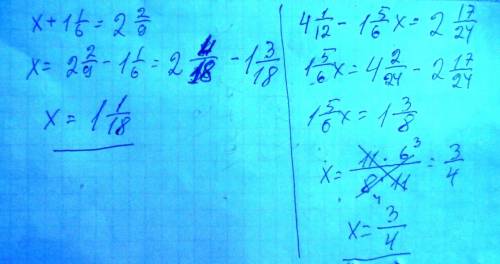 x + 1 1/6 = 2 2/9
x = 2 2/9 - 1 1/6 = 2 4/18 - 1 3/18
x = 1 1/18
4 1/12 - 1 5/6 x = 2 17/24
1 5/6 x = 4 2/24 - 2 17/24
1 5/6 x = 1 3/8
x = 11 · 6 3 / 8 4 · 11 = 3/4
x = 3/4